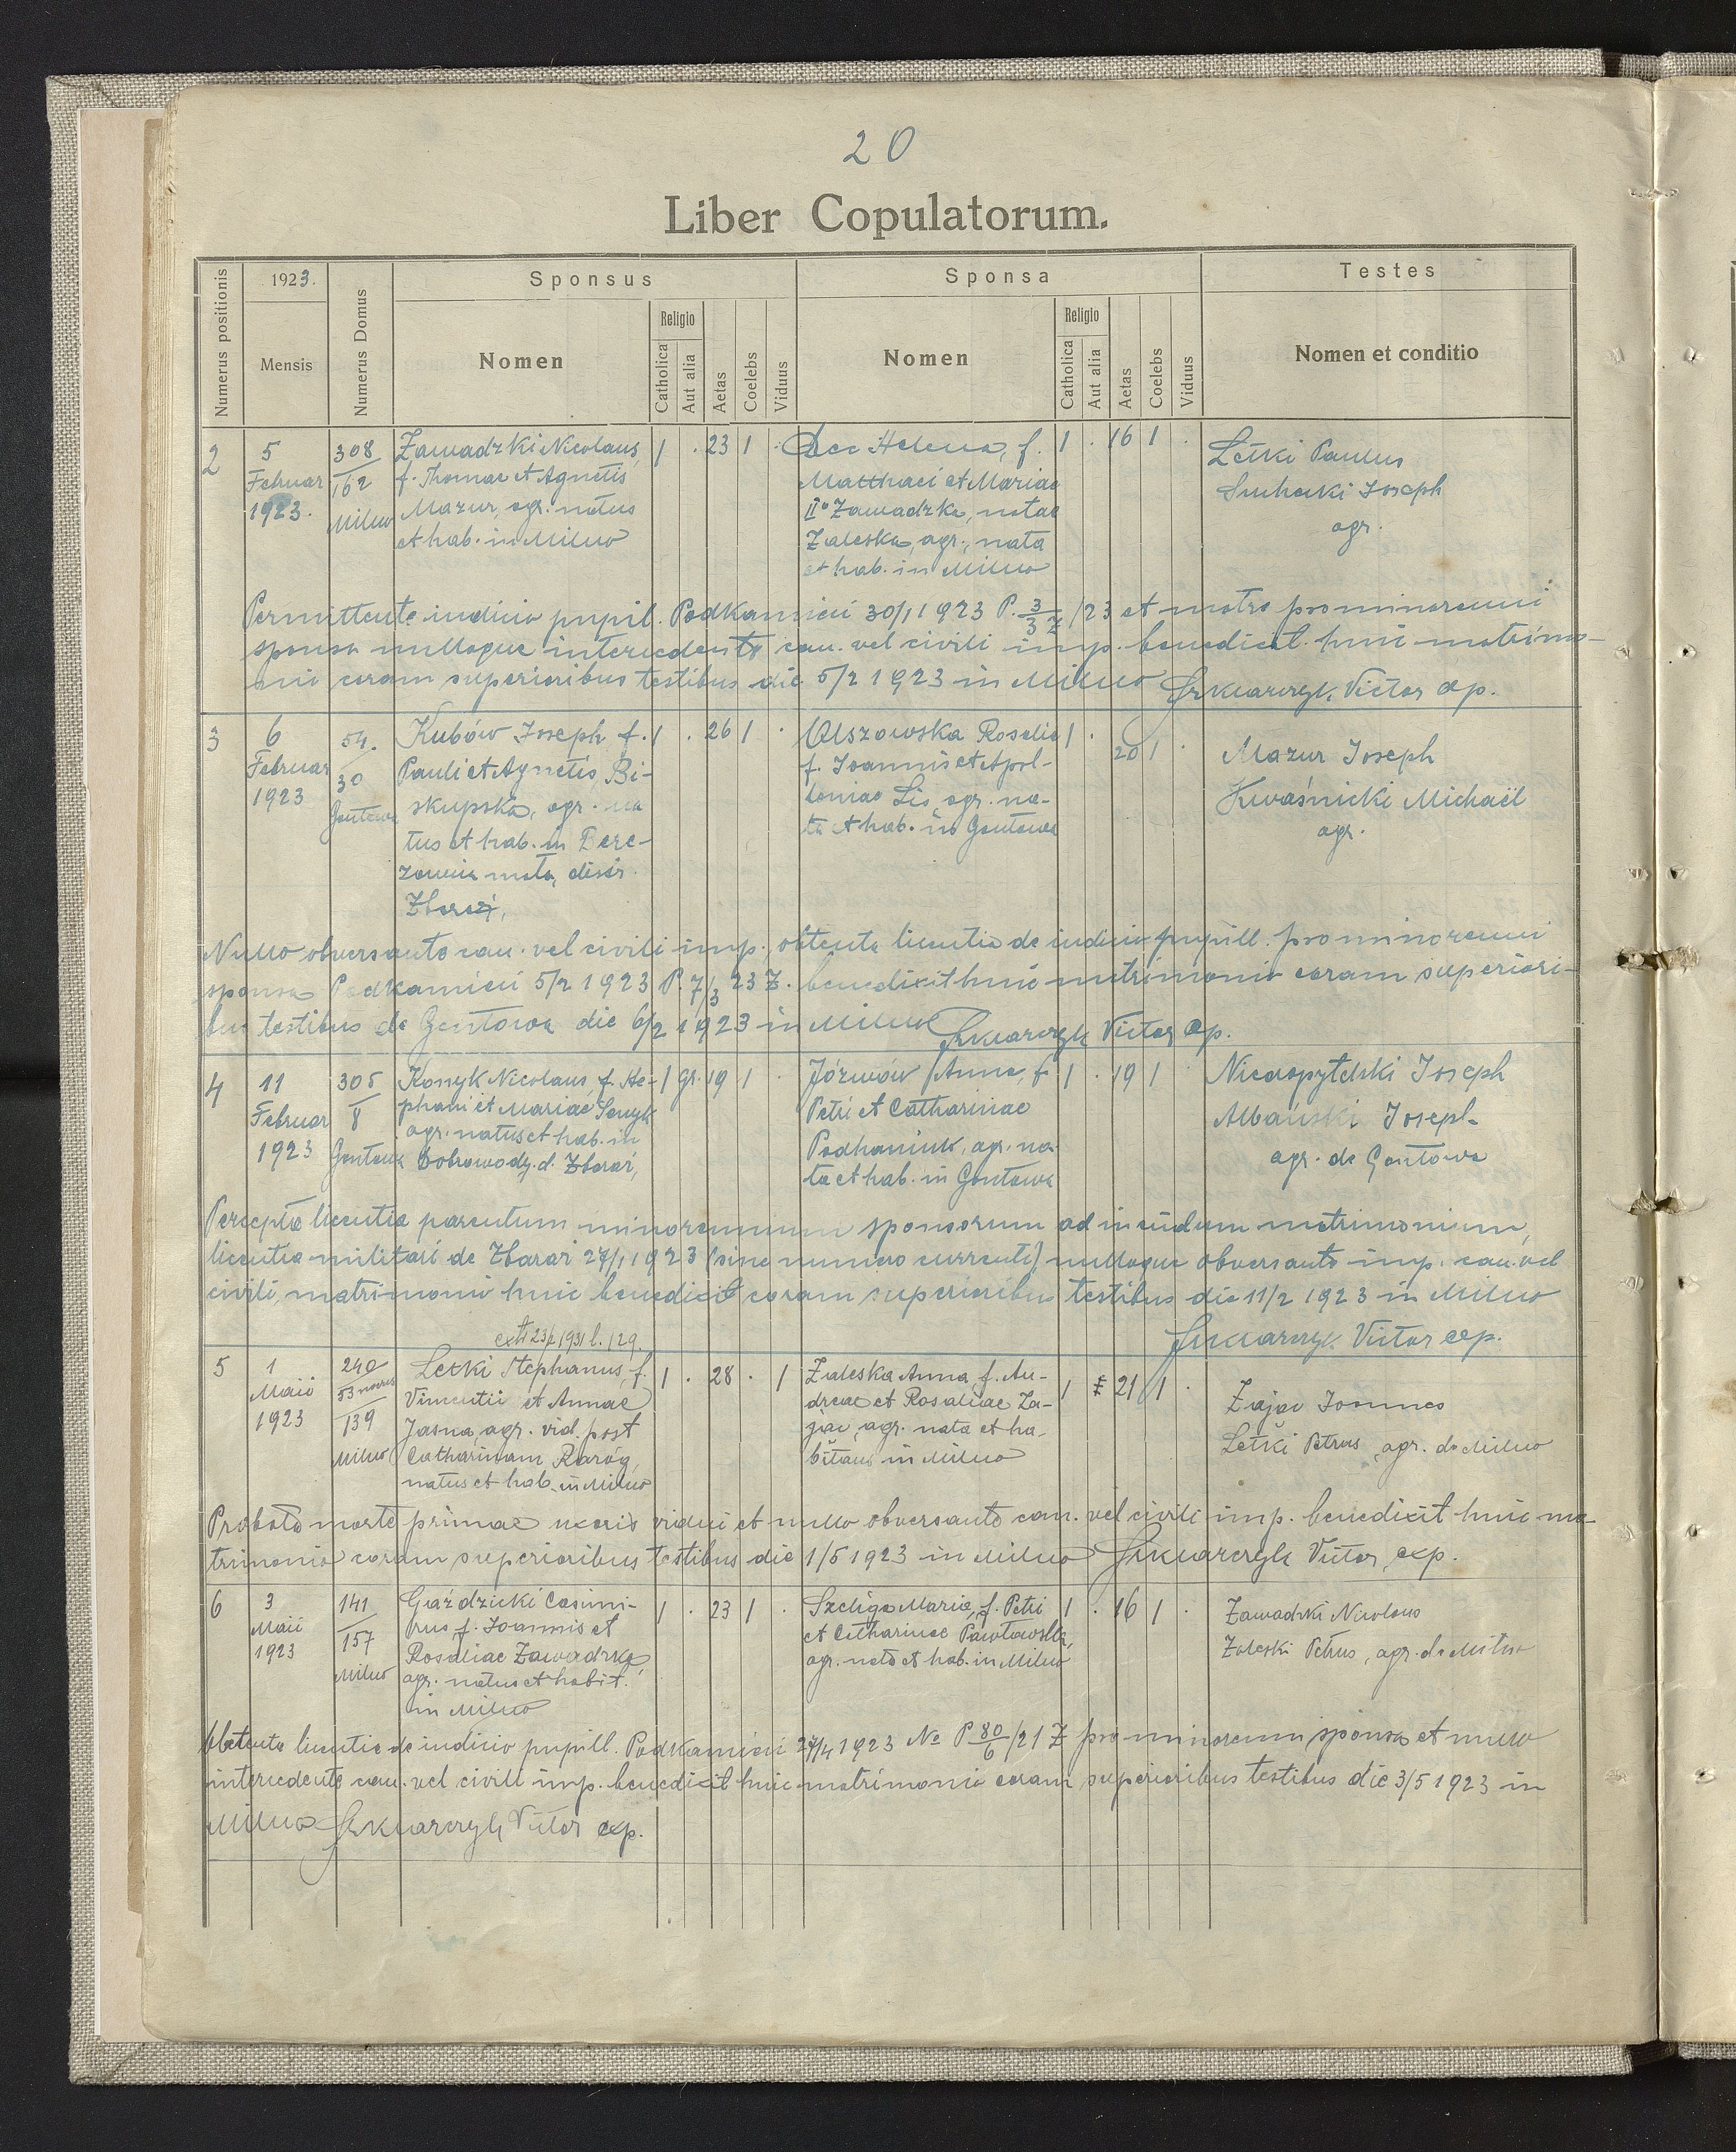 20
Liber Copulatorum.
Numerus positionis
1923.
Mensis
Numerus Domus
Sponsus
Nomen
Religio
Catholica
Aut alia
Aetas
Coelebs
Viduus
Sponsa
Nomen
Religio
Catholica
Aut alia
Aetas
Coelebs
Viduus
Testes
Nomen et conditio
2
5
Februar
1923.
308
162
Milno
Zawadzki Nicolaus,
f. Thomae et Agnetis
Mazur, agr. natus
et hab. in Milno
1 . 23 1 .
Dec Helena, f.
Matthaei et Mariae
II° Zawadzka, natae
Zaleska, agr., nata
et hab. in Milno
1 . 16 1 .
Letki Paulus
Suchecki Joseph
agr.
Permittente iudicio pupil. Podkamieni 30/1 1923 P. 3/3 Z/23 et matre pro minorenni
sponsa nulloque intercedente can. vel civili imp. benedixit huic matrimo-
nio coram superioribus testibus die 5/2 1923 in Milno Szkwarczyk Victor exp.
3
6
Februar
1923
54.
30
Gontowa
Kubów Joseph f.
Pauli et Agnetis, Bi-
skupska, agr. na
tus et hab. in Bere-
zowica mała, distr.
Zbaraż,
1 . 26 1 .
Olszowska Rosalia
f. Joannis et Apol-
loniae Lis, agr. na-
ta et hab. in Gontowa
1 . 20 1 .
Mazur Joseph
Kwaśnicki Michaël
agr.
Nullo obversante can. vel civili imp., obtenta licentia de iudicio pupill. pro minorenni
sponsa Podkamieni 5/2 1923 P. 7/3 23 Z. benedixit huic matrimonio coram superiori-
bus testibus de Gontowa die 6/2 1923 in Milno Szkwarczyk Victor exp.
4
11
Februar
1923
305
8
Gontowa
Konyk Nicolaus f. Ste-
phani et Mariae Senyk
agr. natus et hab. in
Dobrowody. d. Zbaraż,
1 gr. 19 1 .
Józwów Anna, f.
Petri et Catharinae
Podhaniuk, agr. na-
ta et hab. in Gontowa
1 . 19 1 .
Nierospytelski Joseph
Albański Joseph
agr. de Gontowa
Percepta licentia parentum minorennium sponsorum ad ineundum matrimonium,
licentia militari de Zbaraż 27/1 1923 (sine numero currenti) nulloque obversante imp. can. vel
civili, matrimonio huic benedixit coram superioribus testibus die 11/2 1923 in Milno
Szkwarczyk Victor exp.
extr 23/2 1931 l. 129.
5
1
Maii
1923
240
53 novus
139
Milno
Letki Stephanus, f.
Vincentii et Annae
Jasna, agr. vid. post
Catharinam Raróg,
natus et hab. in Milno
1 . 28 . 1
Zaleska Anna f. An-
dreae et Rosaliae Za-
jac, agr. nata et ha-
bitans in Milno
1 21 1 .
Zając Joannes
Letki Petrus, agr. de Milno
Probato morte primae uxoris vidui et nullo obversante can. vel civili imp. benedixit huic ma-
trimonio coram superioribus testibus die 1/5 1923 in Milno Szkwarczyk Victor, exp.
6
3
Maii
1923
141
157
Milno
Gaździcki Casimi-
rus f. Joannis et
Rosaliae Zawadzka,
agr. natus et habit.
in Milno
1 . 23 1 .
Szeliga Maria, f. Petri
et Catharinae Pawłowska,
agr. nata et hab. in Milno
1 . 16 1 .
Zawadzki Nicolaus
Zaleski Petrus, agr. de Milno
Obtenta licentia de iudicio pupill. Podkamieni 27/4 1923 No P 80/6 /21 Z pro minorenni sponsa et nullo
intercedente can. vel civili imp. benedixit huic matrimonio coram superioribus testibus die 3/5 1923 in
Milno Szkwarczyk Victor exp.